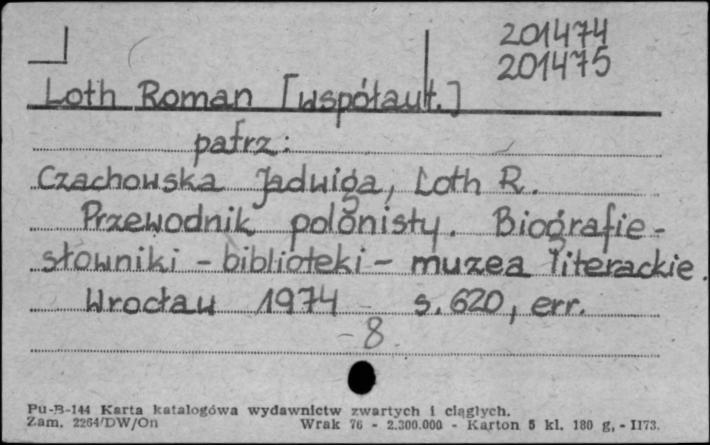 201474
201475
Loth Roman [współaut.]
patrz:
Czachowska Jadwiga, Loth R.
Przewodnik polonisty. Biografie -
słowniki - biblioteki - muzea literackie.
Wrocław 1974 s. 620, err.
- 8.
Pu-B-144 Karta katalogówa wydawnictw zwartych i ciągłych.
Zam. 2264/DW/On Wrak 76 - 2.300.000 - Karton 5 kl. 180 g, - II73.